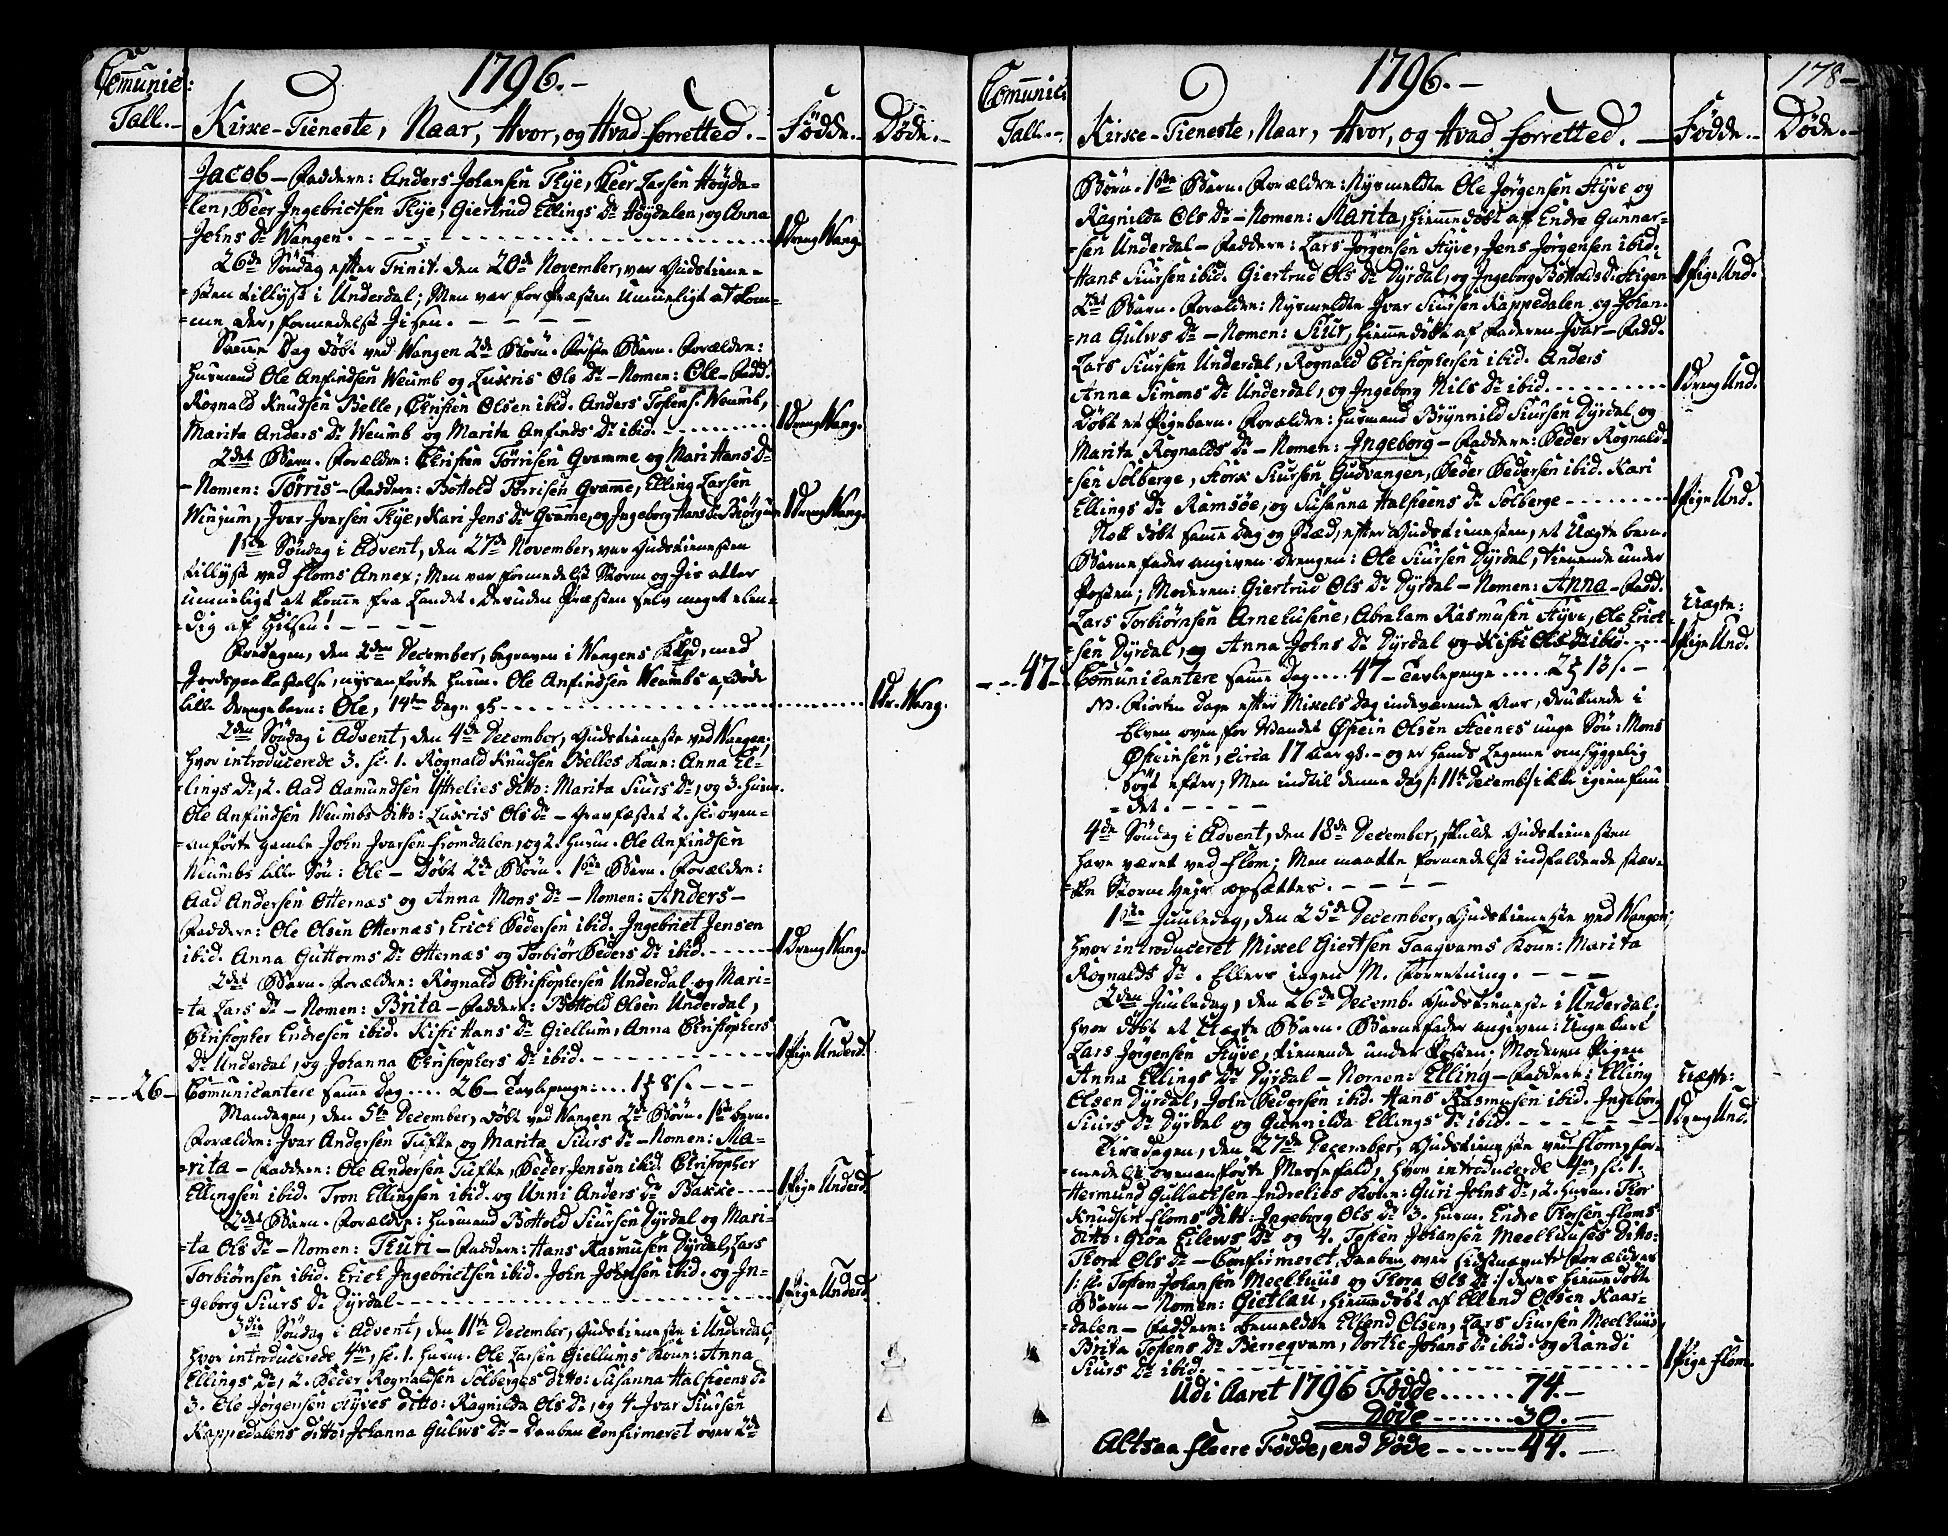 Com̄unic:
Tall.-
1796.-
Kirke-Tieneste, Naar, Hvor, og Hvad forretted.-
Fødde.-
Døde.-
Jacob - Faddere: Anders Johansen Skje, Peer Larsen Høyda-
len, Peer Ingebrictsen Skje, Giertrud Ellings Dr Høydalen, og Anna
Johns Dr Wangen.
1 Dreng Wang.
26de Søndag efter Trinit. den 20de November, var Gudstiene-
sten tillyst i Underdal; Men var for Præsten umueligt at kom-
me der, formedelst Jisen.
Sam̄e Dag døbt ved Wangen 2de Børn. Første Barn. Forældre:
Husmand Ole Anfindsen Weumb og Lucris Ols Dr - Nomen: Ole - Fadd.
Rognald Knudsen Belle, Christen Olsen ibid. Anders Tostens. Weumb,
Marita Anders Dr Weumb og Marita Anfinds Dr ibid.
1 Dreng Wang.
2det Barn. Forældre: Christen Tørrisen Qvamme og Mari Hans Dr
- Nomen: Tørris - Faddere: Bottold Tørrisen Qvam̄e, Elling Larsen
Winjum, Ivar Ivarsen Skje, Kari Jens Dr Qvam̄e, og Ingeborg Hans Dr Biørgum
1 Dreng Wang.
1ste Søndag i Advent, den 27de November, var Gudstienesten
tillyst ved Floms Annex; Men var formedelst Storm og Jis atter
umueligt at kom̄e fra Landet. Desuden Præsten selv meget elen-
dig af Hilsen!
Fredagen, den 2den December, begraven i Wangens Kird, med
Jordspaakastelse, nysanførte Husm. Ole Anfindsen Weumbs afdøde
lille Drengebarn: Ole, 14ten Dage gl.
1 Dr. Wang.
2den Søndag i Advent, den 4de December, Gudstieneste ved Wangen;
hvor introducerede 3. sc. 1. Rognald Knudsen Belles Kone: Anna El-
lings Dr, 2. Aad Aamundsen Ythrelies ditto: Marita Siurs Dr, og 3. Husm.
Ole Anfindsen Weumbs ditto: Lucris Ols Dr - Gravfæstet 2. sc: oven-
anførte gamle John Ivarsen Fromdalen, og 2. Husm. Ole Anfindsen
Weumbs lille Søn: Ole - Døbt 2de Børn. 1ste Barn. Forældre:
Aad Andersen Otternæs og Anna Mons Dr - Nomen: Anders -
Faddere: Ole Olsen Otternæs, Erick Pedersen ibid. Ingebrict Jensen
ibid. Anna Guttorms Dr Otternæs og Torbiør Peders Dr ibid.
1 Dreng Wang.
2det Barn. Forældre: Rognald Christophersen Underdal og Mari-
ta Lars Dr - Nomen: Brita - Faddere: Bottold Olsen Underdal,
Christopher Endresen ibid. Kisti Hans Dr Giellum, Anna Christophers
Dr Underdal, og Johanna Christophers Dr ibid.
1 Pige Underd.
26-
Com̄unicantere sam̄e Dag.... 26 - Tavlepenge:... 1 ₰ 8 s.
Mandagen, den 5te December, døbt ved Wangen 2de Børn. 1ste barn.
Forældre: Ivar Andersen Tufte og Marita Siurs Dr - Nomen: Ma-
rita - Faddere: Ole Andersen Tufte, Peder Jensen ibid. Christopher
Ellingsen ibid. Tron Ellingsen ibid. og Unni Anders Dr Bakke
1 Pige Underd.
2det Barn. Forældre: Husmand Bottold Siursen Dyrdal og Mari-
ta Ols Dr - Nomen: Thuri - Faddere: Hans Rasmusen Dyrdal, Lars
Torbiørnsen ibid. Erick Ingebrictsen ibid. John Johnsen ibid. og In-
geborg Siurs Dr Dyrdal
1 Pige Underd.
3die Søndag i Advent, den 11te December, Gudstieneste i Underdal;
hvor introducerede 4re, sc. 1. Husm. Ole Larsen Giellums Kone: Anna
Ellings Dr, 2. Peder Rognaldsen Solberges ditto: Susanna Halsteens Dr
3. Ole Jørgensen Styves ditto: Ragnilda Ols Dr, og 4. Ivar Siursen
Kappedalens ditto: Johanna Gulws Dr - Daaben confirmeret over 2de
Com̄unic:
Tall.-
1796.-
Kirke-Tieneste, Naar, Hvor, og Hvad forretted.-
Fødde.-
178-
Døde.-
Børn. 1ste Barn. Forældre: Nysmeldte Ole Jørgensen Styve og
Ragnilda Ols Dr - Nomen: Marita, hiem̄edøbt af Endre Gunnar-
sen Underdal - Faddere: Lars Jørgensen Styve, Jens Jørgensen ibid.
Hans Siursen ibid. Giertrud Ols Dr Dyrdal, og Ingeborg Bottolds Dr Stigen
1 Pige Und.
2det Barn. Forældre: Nysmeldte Ivar Siursen Kappedalen og Johan-
na Gulws Dr - Nomen: Siur, hiem̄edøbt af Faderen Ivar - Fadd.
Lars Siursen Underdal, Rognald Christophersen ibid. Anders
Anna Simens Dr Underdal, og Ingeborg Nils Dr ibid.
1 Dreng Und.
Døbt et Pigebarn. Forældre: Husmand Brynnild Siursen Dyrdal og
Marita Rognalds Dr - Nomen: Ingeborg - Faddere: Peder Rognald-
sen Solberge, Størk Siursen Gudvangen, Peder Pedersen ibid. Kari
Ellings Dr Ramsøe, og Susanna Halsteens Dr Solberge
1 Pige Und.
Nok døbt sam̄e Dag og Stæd, efter Gudstienesten, et Uægte barn.
Barnefader angiven Drengen: Ole Siursen Dyrdal, tienende under
Posten; Moderen: Giertrud Ols Dr Dyrdal - Nomen: Anna - Fadd.
Lars Torbiørnsen Arnehusene, Abraham Rasmusen Styve, Ole Erick-
sen Dyrdal, og Anna Johns Dr Dyrdal og Kisti Ols Dr ibid.
Uægte:
1 Pige Und.
47-
Com̄unicantere sam̄e Dag.... 47 - Tavlepenge..... 2 ₰ 18 s.
N. Fiorten Dage efter Mikels Dag indeværende Aar, druknede i
Elven oven for Wandet Østein Olsen Steenes unge Søn: Mons
Østeinsen, circa 17 Aar gl. - og er hands Legeme omhyggelig
søgt efter; Men indtil denne Dag /: 11te Decemb:/ ikke igienfun-
det.
4de Søndag i Advent, den 18de December, skulde Gudstienesten
have været ved Flom; Men maatte formedelst indfaldende stær-
ke Storm Veyr opsættes.
1ste Juuledag, den 25de December, Gudstieneste ved Wangen;
hvor introduceret Mikel Giertsen Taagvams Kone: Marita
Rognalds Dr. Ellers ingen M. Forretning.
2den Juuledag, den 26de Decemb: Gudstieneste i Underdal;
hvor døbt et Uægte Barn. Barnefader angiven: Unge Karl
Lars Jørgensen Styve, tienende under Posten; Moderen Pigen
Anna Ellings Dr Dyrdal - Nomen: Elling - Faddere: Elling
Olsen Dyrdal, John Pedersen ibid. Hans Rasmusen ibid. Ingeborg
Siurs Dr Dyrdal og Gunnilda Ellings Dr ibid.
Uægte:
1 Dreng Und.
Tirsdagen, den 27de December, Gudstieneste ved Flom, for-
medelst ovenanførte Messefald, hvor introducerede 4re, sc. 1.
Hermund Gullacksen Indrelies Kone: Guri Johns Dr, 2. Husm. Thor
Knudsen Floms ditto: Ingeborg Ols Dr 3. Husm. Endre Thorsen Floms
ditto: Gior Eilews Dr og 4. Tosten Johansen Meelhuuses ditto:
Thora Ols Dr - Confirmeret Daaben over sidstnævnte Forældres
/: sc. Tosten Johansen Meelhuus og Thora Ols Dr :/ deres hiem̄edøbte
Barn - Nomen: Gietlau, hiem̄edøbt af Ellend Olsen Kaar-
dalen - Faddere: bemeldte Ellend Olsen, Lars Siursen Meelhuus,
Brita Tostens Dr Berreqvam, Dorthe Johans Dr ibid. og Randi
Siurs Dr ibid.
1 Pige Flom.
Udi Aaret 1796 Fødde...... 74.-
Døde...... 30.-
Altsaa fleere Fødde, end Døde...... 44.-